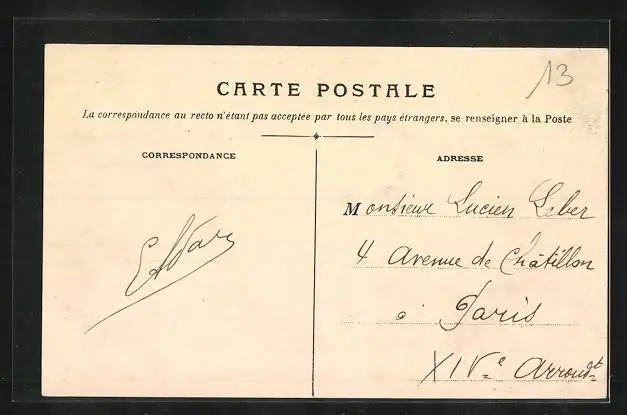 13
CARTE POSTALE
La correspondance au recto n'étant pas acceptée par tous les pays étrangers, se renseigner à la Poste
CORRESPONDANCE
ADRESSE
Monsieur Lucien Leber
4 Avenue de Châtillon
à Paris
XIVe Arrondt